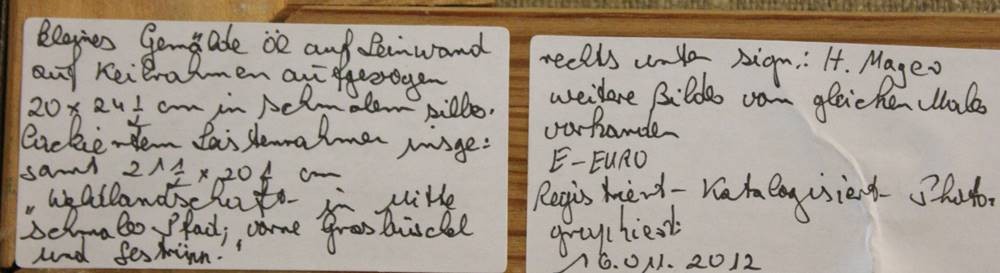 kleines Gemälde Öl auf Leinwand
auf Keilrahmen aufgezogen
20 x 24 1/2 cm in schmalem silber-
lackiertem Leistenrahmen insge=
samt 21 1/2 x 20 1/2 cm
„Waldlandschaft- in Mitte
schmaler Pfad, vorne Grasbüschel
und Gestrüpp."
rechts unten sign.: H. Mager
weitere Bilder vom gleichen Maler
vorhanden
E-EURO
Registriert- Katalogisiert- Photo-
graphiert:
16.011. 2012